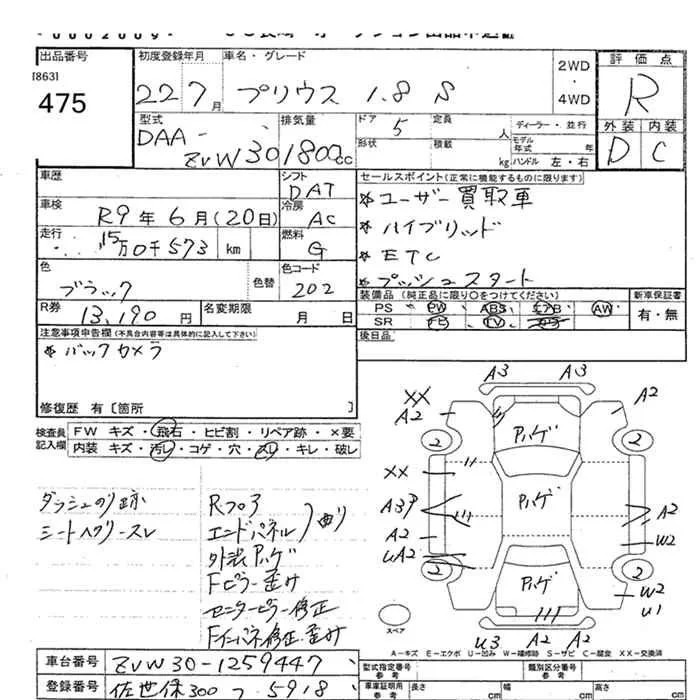 出品番号
[863]
475
初度登録年月
22 7月
車名・グレード
プリウス 1.8 S
2WD
・
4WD
評価点
R
外装 内装
D C
型式
DAA-
ZVW30
排気量
1800cc
ドア
5
定員
人
形状
積載
kg
ディーラー・並行
モデル年式
年
ハンドル 左・右
車歴
シフト
DAT
車検
R9年6月(20日)
冷房
AC
走行
15万0千573 km
燃料
G
色
ブラック
色替
色コード
202
R券
13,190円
名変期限
月 日
セールスポイント(正常に機能するものに限ります)
* ユーザー買取車
* ハイブリッド
* ETC
* プッシュスタート
装備品(純正品に限り○をつけてください)
PS PW ABS エアB AW
SR ナビ TV カワ
新車保証書
有・無
後日品
注意事項申告欄(不具合内容等は具体的に記入して下さい)
* バックカメラ
修復歴 有〔箇所 〕
検査員記入欄
FW キズ・飛石・ヒビ割・リペア跡・×要
内装 キズ・汚レ・コゲ・穴・スレ・キレ・破レ
ダッシュのリ跡
シートヘタリースレ
Rフロア
エンドパネル
外装ハゲ
Fピラー歪み
センターピラー修正
Fインパネ修正・歪み
A3 A3
XX
A2
A2
2
2
ハゲ
XX
ハゲ
A3
A2
A2
W2
UA2
2
2
ハゲ
W2
U1
スペア
U3 A2 A2
A-キズ E-エクボ U-凹み W-補修跡 S-サビ C-腐食 XX-交換済
車台番号
ZVW30-1259447
登録番号
佐世保300 つ 5918
型式指定番号
参考
類別区分番号
参考
車庫証明用
参考
長さ cm
幅 cm
高さ cm